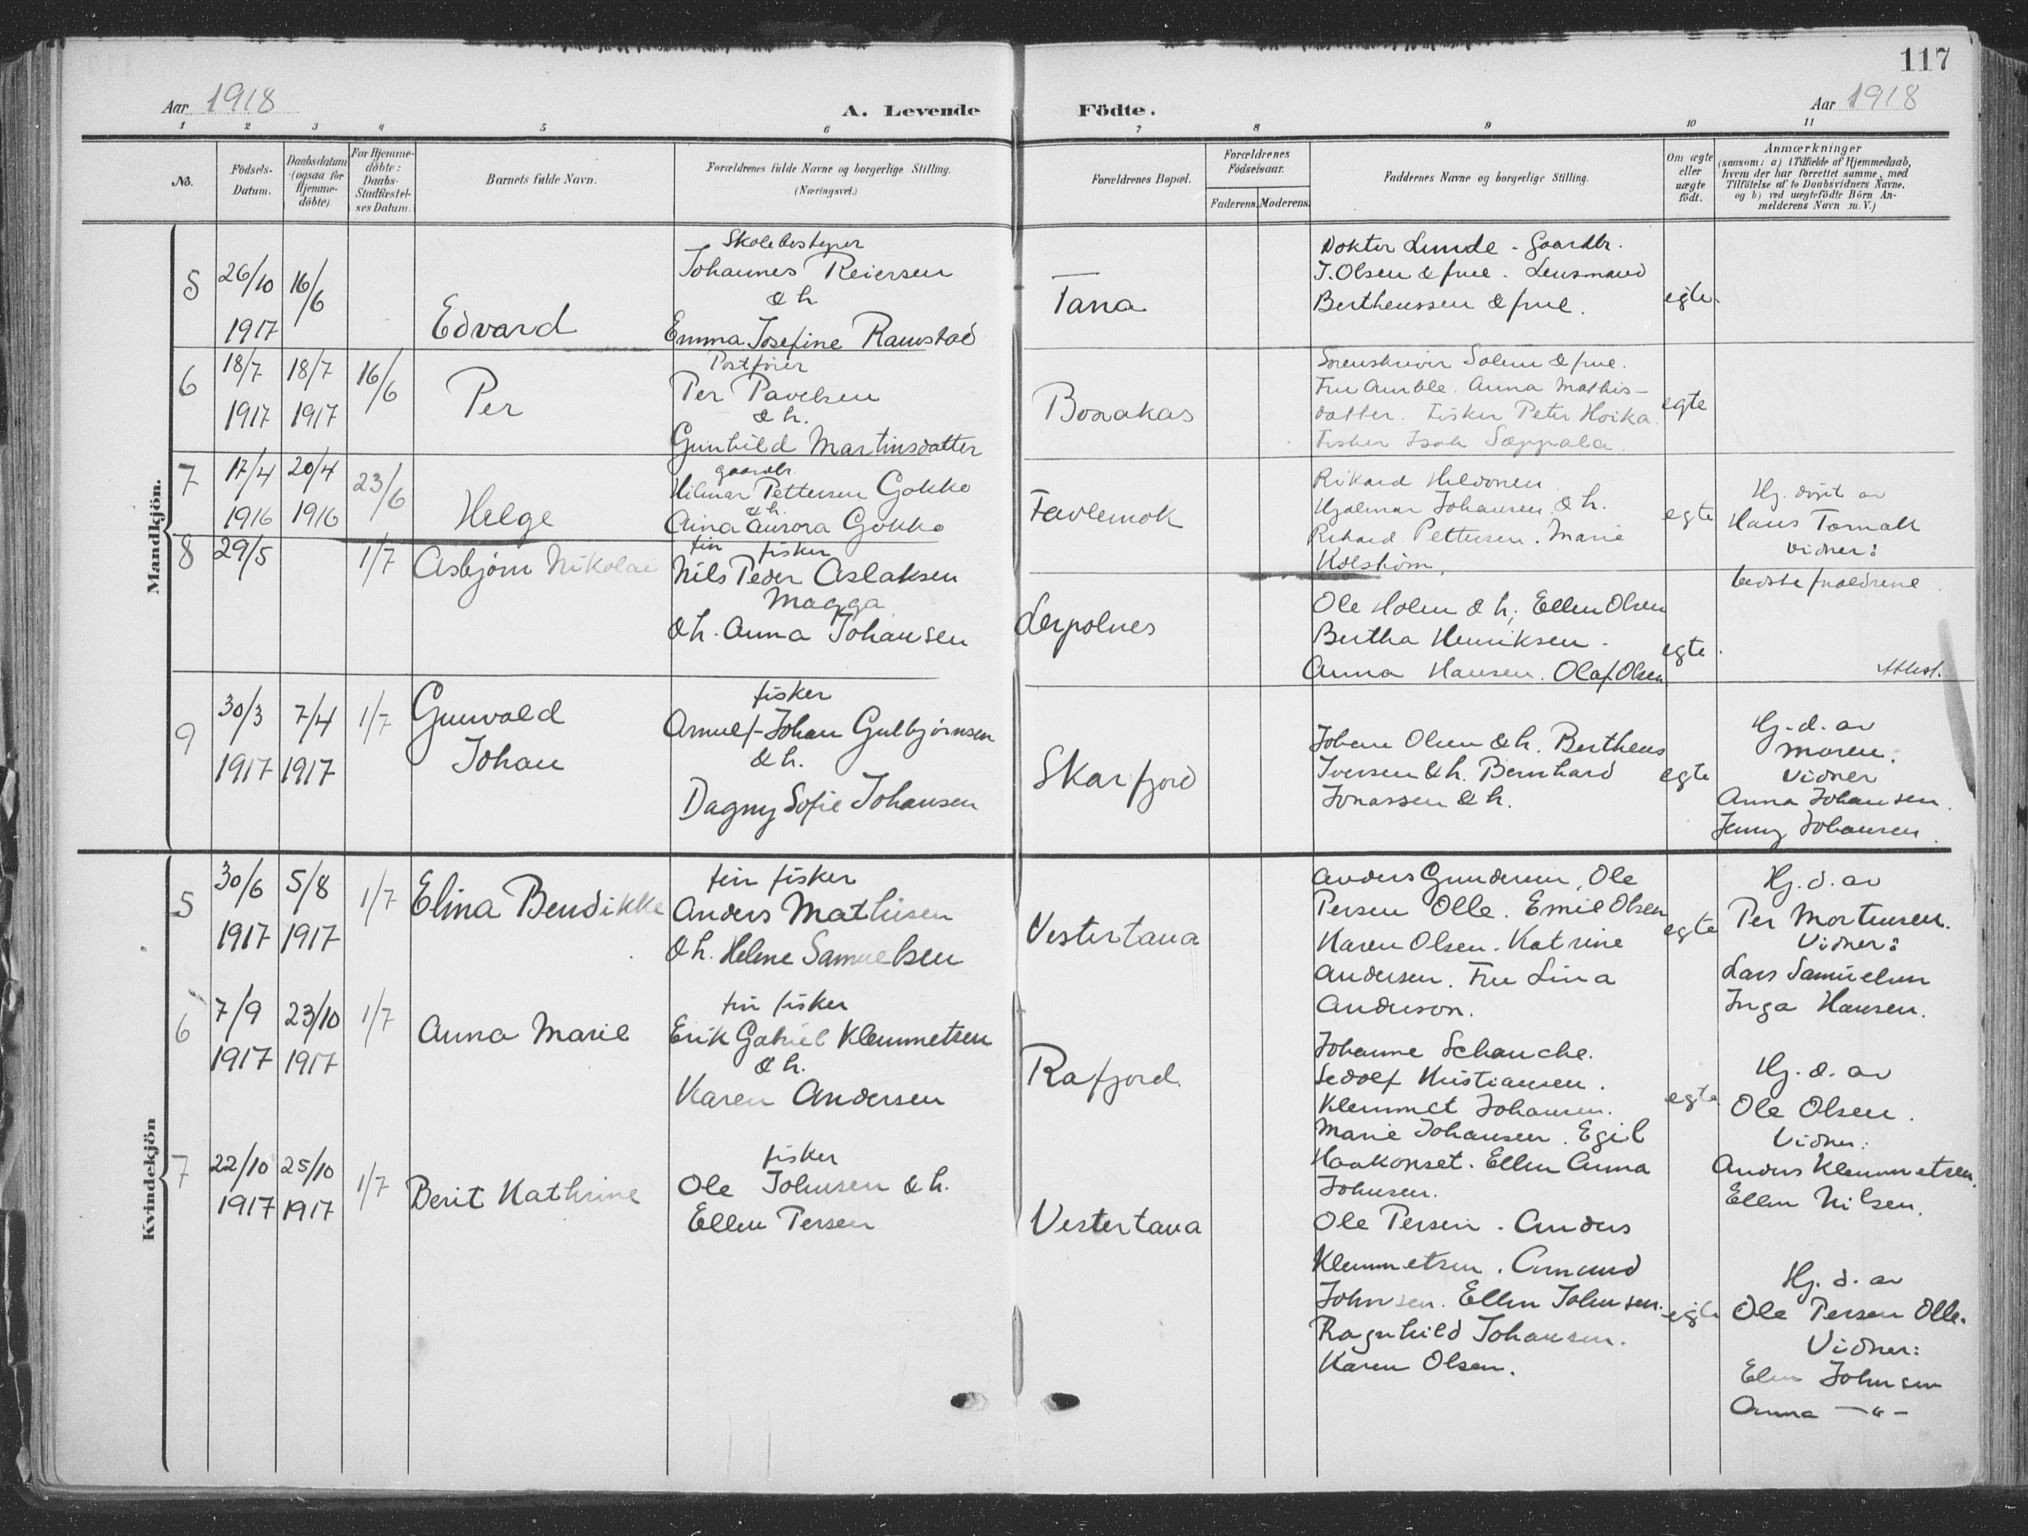 117
Aar 1918
A. Levende Födte.
Aar 1918
1 2 3 4 5 6 7 8 9 10 11
No.
Födsels-
Datum.
Daabsdatum
(ogsaa for
Hjemme-
döbte)
For Hjemme-
döbte:
Daabs-
Stadfæstel-
ses Datum.
Barnets fulde Navn.
Forældrenes fulde Navne og borgerlige Stilling.
(Næringsvei.)
Forældrenes Bopæl.
Forældrenes
Födselsaar.
Faderens. Moderens.
Faddernes Navne og borgerlige Stilling.
Om ægte
eller
uægte
födt.
Anmærkninger
(saasom: a) i Tilfælde af Hjemmedaab,
hvem der har forrettet samme, med
Tilföielse af to Daabsvidners Navne,
og b) ved uægtefödte Börn An-
melderens Navn m.V.)
Mandkjön.
5
26/10
1917
16/6
Edvard
Skolebestyrer
Johannes Reiersen
& h.
Emma Josefine Ramstad
Tana
Doktor Lunde - Gaardbr.
J. Olsen & frue. Lensmand
Bertheussen & frue.
egte.
6
18/7
1917
18/7
1917
16/6
Per
Postfører
Per Pavelsen
& h.
Gunhild Martinsdatter
Bonakas
Sorenskriver Solem & frue.
Fru Amble. Anna Mathis-
datter. Fisker Peter Hoika
Fisker Isak Sæppala
egte
7
17/4
1916
20/4
1916
23/6
Helge
gaardbr.
Hilmar Pettersen Gokke
& h.
Aina Aurora Gokke
Favlemok
Rikard Hildonen
Hjalmar Johansen & h.
Rikard Pettersen. Marie
Kolstrøm.
egte
Hj. døpt av
Hans Tornall
Vidner:
8
29/5
1/7
Asbjørn Nikolai
fin fisker
Nils Peder Aslaksen
Magga
& h. Anna Johansen
Lerpolnes
Ole Holm & h; Ellen Olsen
Bertha Henriksen.
Anna Hansen. Olaf Olsen
egte.
Attest.
9
30/3
1917
7/4
1917
1/7
Gunvald
Johan
fisker
Arnulf Johan Gulbjørnsen
& h.
Dagny Sofie Johansen
Skarfjord
Johan Olsen & h. Bertheus
Iversen & h. Bernhard
Jonassen & h.
egte
Hj. d. av
moren.
Vidner
Anna Johansen.
Jenny Johansen.
Kvindekjön
5
30/6
1917
5/8
1917
1/7
Elina Bendikke
fin fisker
Anders Mathisen
& h. Helene Samuelsen
Vestertana
Anders Gundersen, Ole
Persen Olle. Emil Olsen
Karen Olsen. Katrine
Andersen. Fru Lina
Anderson.
egte
Hj. d. av
Per Mortensen.
Vidner:
Lars Samuelsen
Inga Hansen.
6
7/9
1917
23/10
1917
1/7
Anna Marie
fin fisker
Erik Gabriel Klemmetsen
& h.
Karen Andersen
Rafjord.
Johanne Schanche.
Sedolf Kristiansen.
Klemmet Johansen.
Marie Johansen. Egil
Haakonset. Ellen Anna
Johnsen.
egte
Hj. d. av
Ole Olsen.
Vidner:
Anders Klemmetsen.
Ellen Nilsen.
7
22/10
1917
25/10
1917
1/7
Berit Kathrine
fisker
Ole Johnsen & h.
Ellen Persen
Vestertana
Ole Persen. Anders
Klemmetsen. Amund
Johnsen. Ellen Johnsen.
Ragnhild Johansen.
Karen Olsen.
egte
Hj. d. av
Ole Persen Olle.
Vidner:
Elen Johnsen
Anna —"—